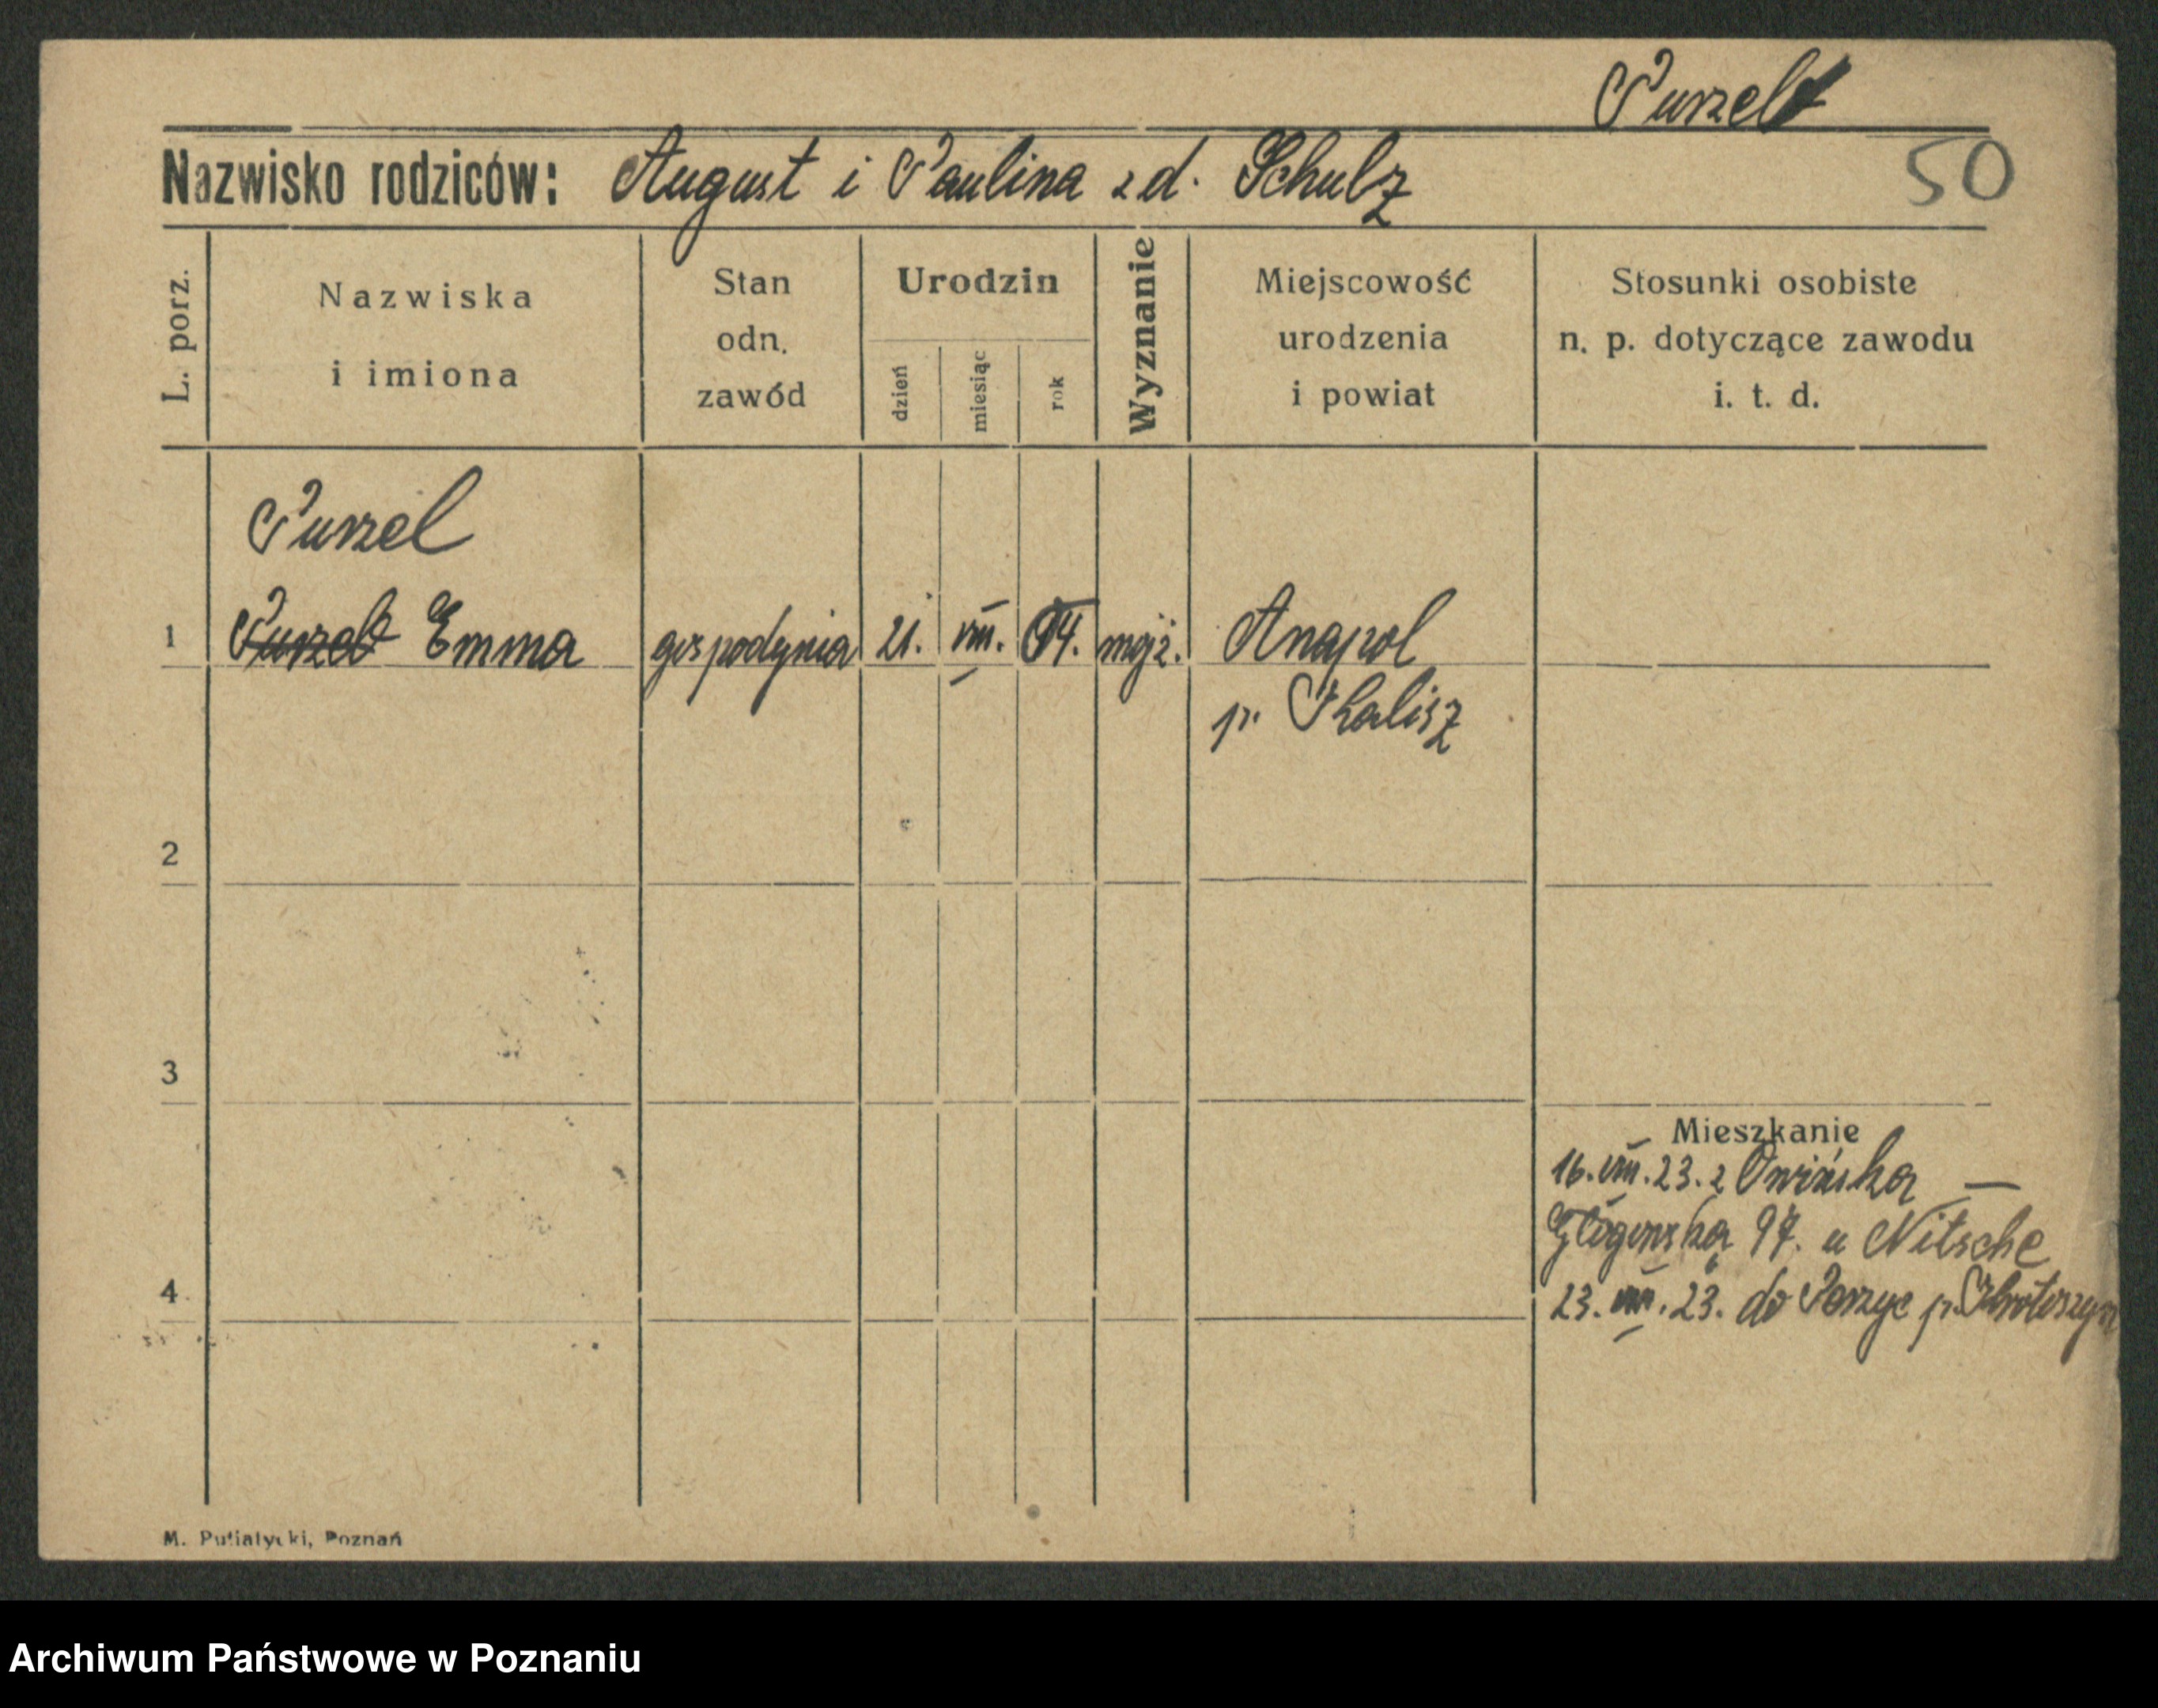 Purzel
Nazwisko rodziców: August i Paulina z d. Schulz
50
L. porz.
Nazwiska
i imiona
Stan
odn.
zawód
Urodzin
dzień
miesiąc
rok
Wyznanie
Miejscowość
urodzenia
i powiat
Stosunki osobiste
n. p. dotyczące zawodu
i. t. d.
Purzel
1 Purzelt Emma gospodynia 21. VIII. 04. mojż. Anapol
p. Kalisz
2
3
Mieszkanie
16. VIII. 23. z Owińska —
Głogowska 97. u Nitsche
4
23. VIII. 23. do Perzyc p. Krotoszyn
M. Putiatycki, Poznań
Archiwum Państwowe w Poznaniu